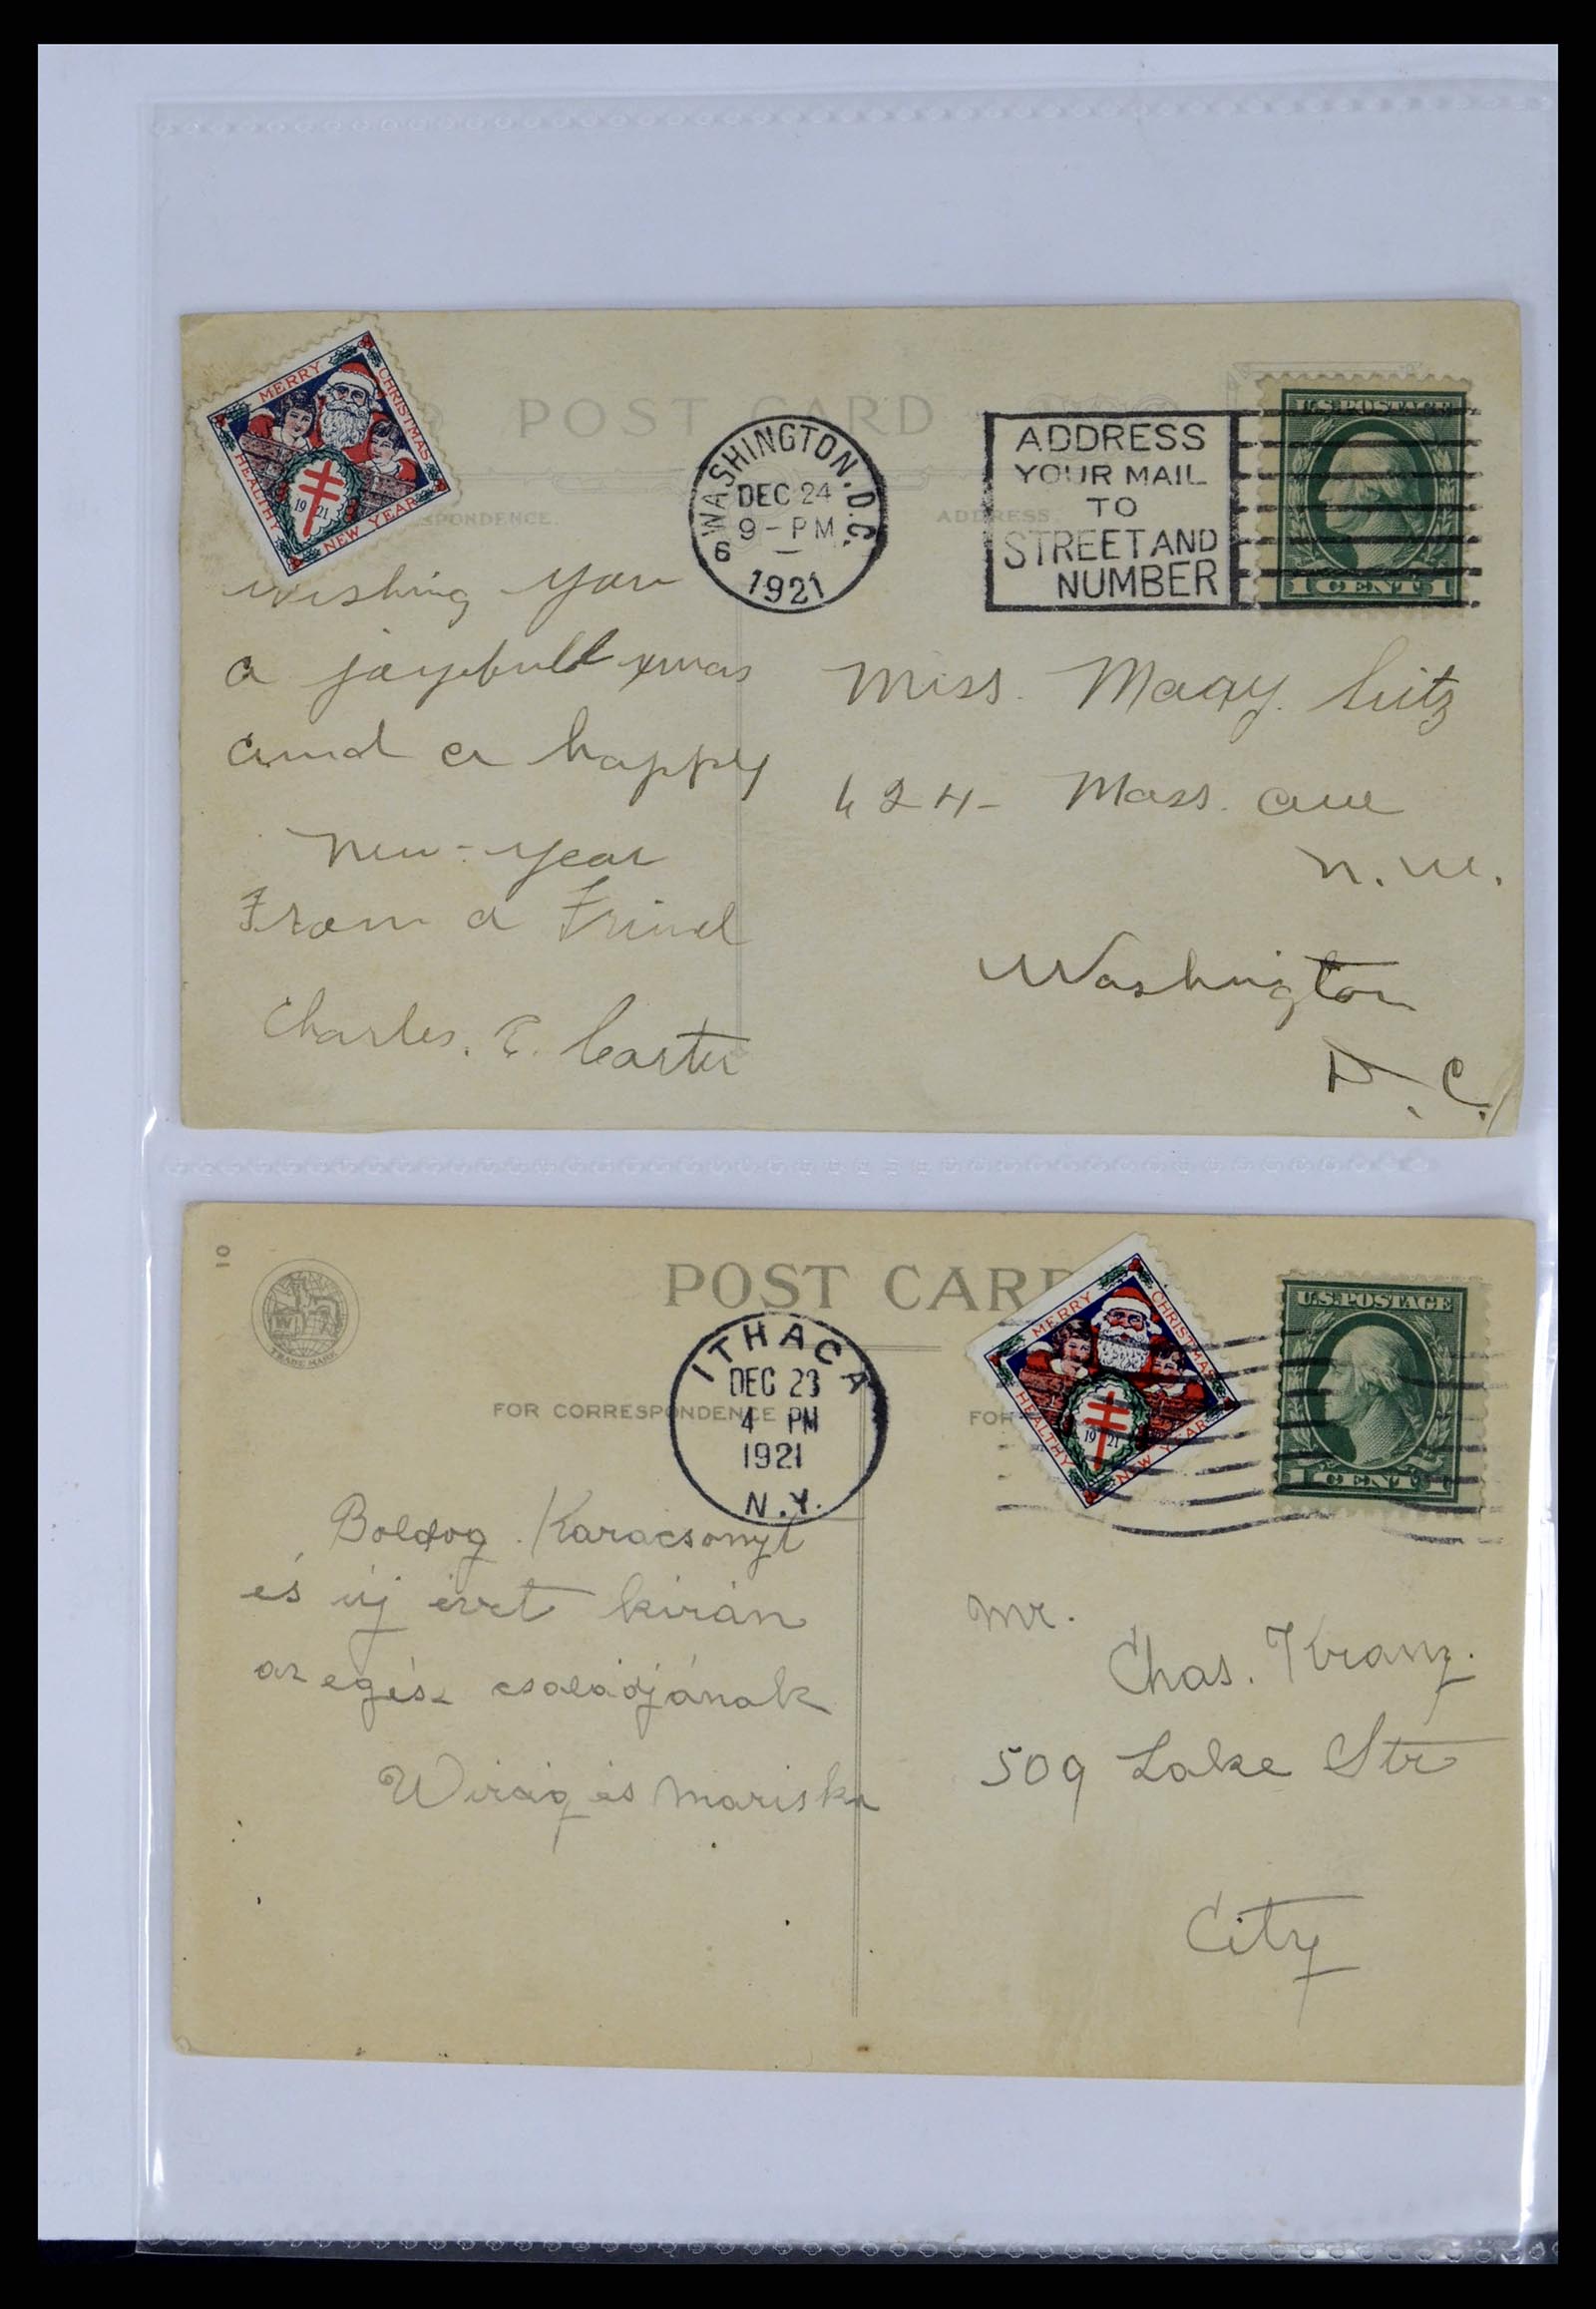 POST CARD
MERRY CHRISTMAS
HEALTHY NEW YEAR
19 21
SPONDENCE.
ADDRESS.
WASHINGTON, D.C.
DEC 24
9 - PM
6
1921
ADDRESS
YOUR MAIL
TO
STREET AND
NUMBER
U.S. POSTAGE
1 CENT 1
wishing you
a joyefull xmas
and a happy
new-year
From a Frind
Charles. E. Carter
Miss. Magy.
624- Mass. ave
N.W.
Washington
D.C.
10
TRADE MARK
POST CAR
FOR CORRESPONDENCE
FOR
ITHACA
DEC 23
4 PM
1921
N.Y.
MERRY CHRISTMAS
HEALTHY NEW YEAR
19 21
U.S. POSTAGE
1 CENT 1
Boldog Karacsonyt
és új évet kiván
az egész családjának
és Mariska
Mr.
Chas. Kranz.
509 Lake Str
City